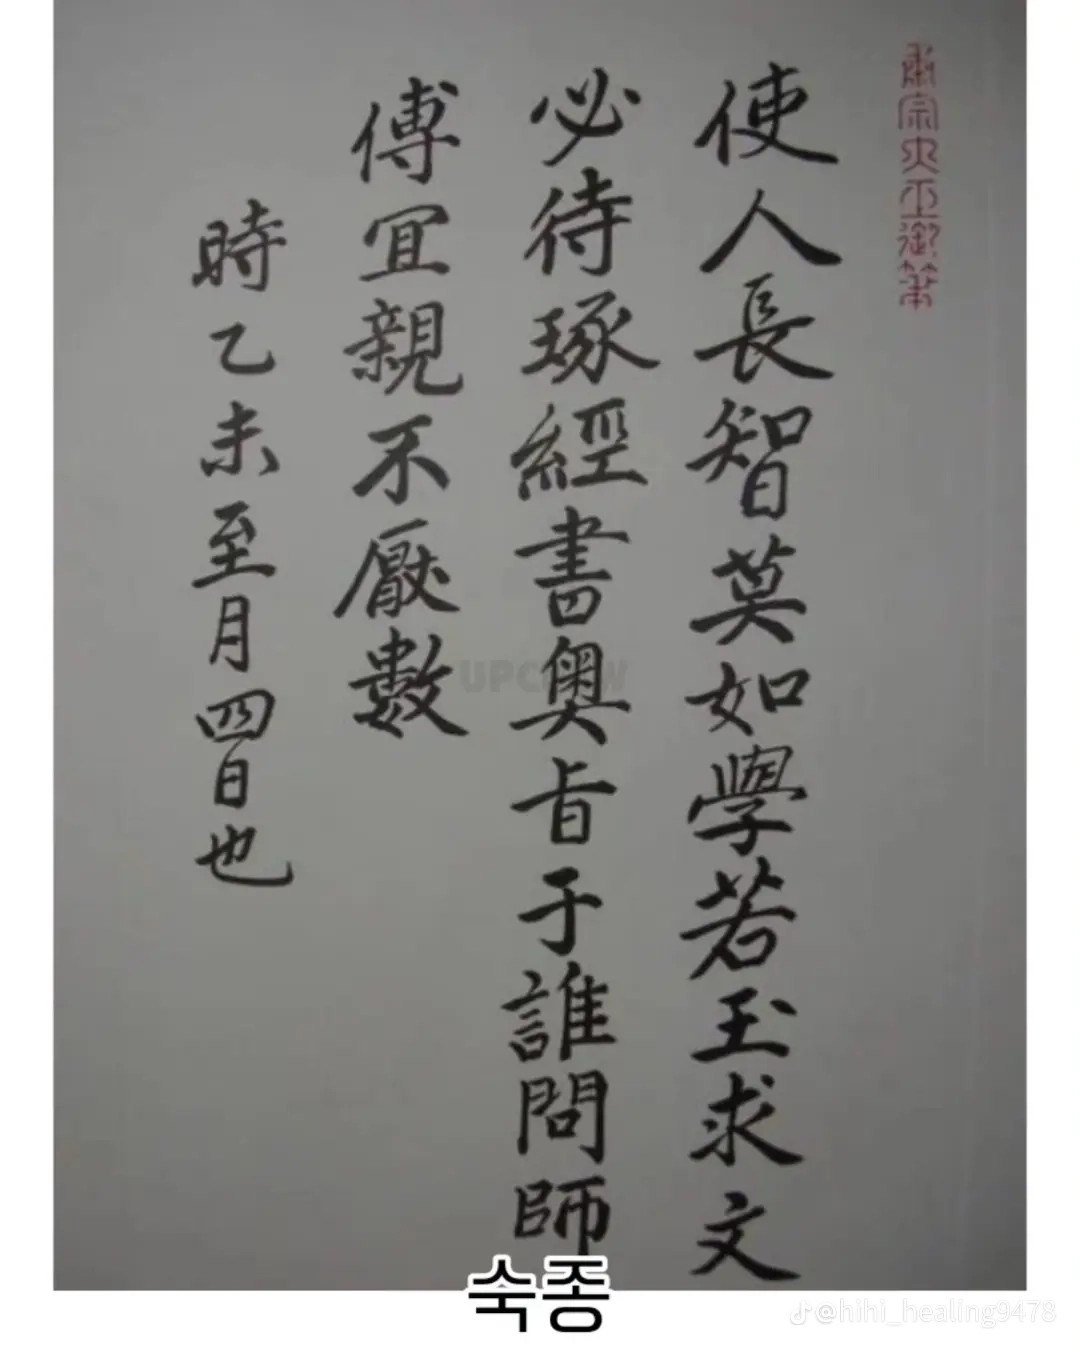 肅宗大王御筆
使人長智莫如學若玉求文
必待琢經書奧旨于誰問師
傅宜親不厭數
時乙未至月四日也
UPC W
숙종
@hihi_healing9478